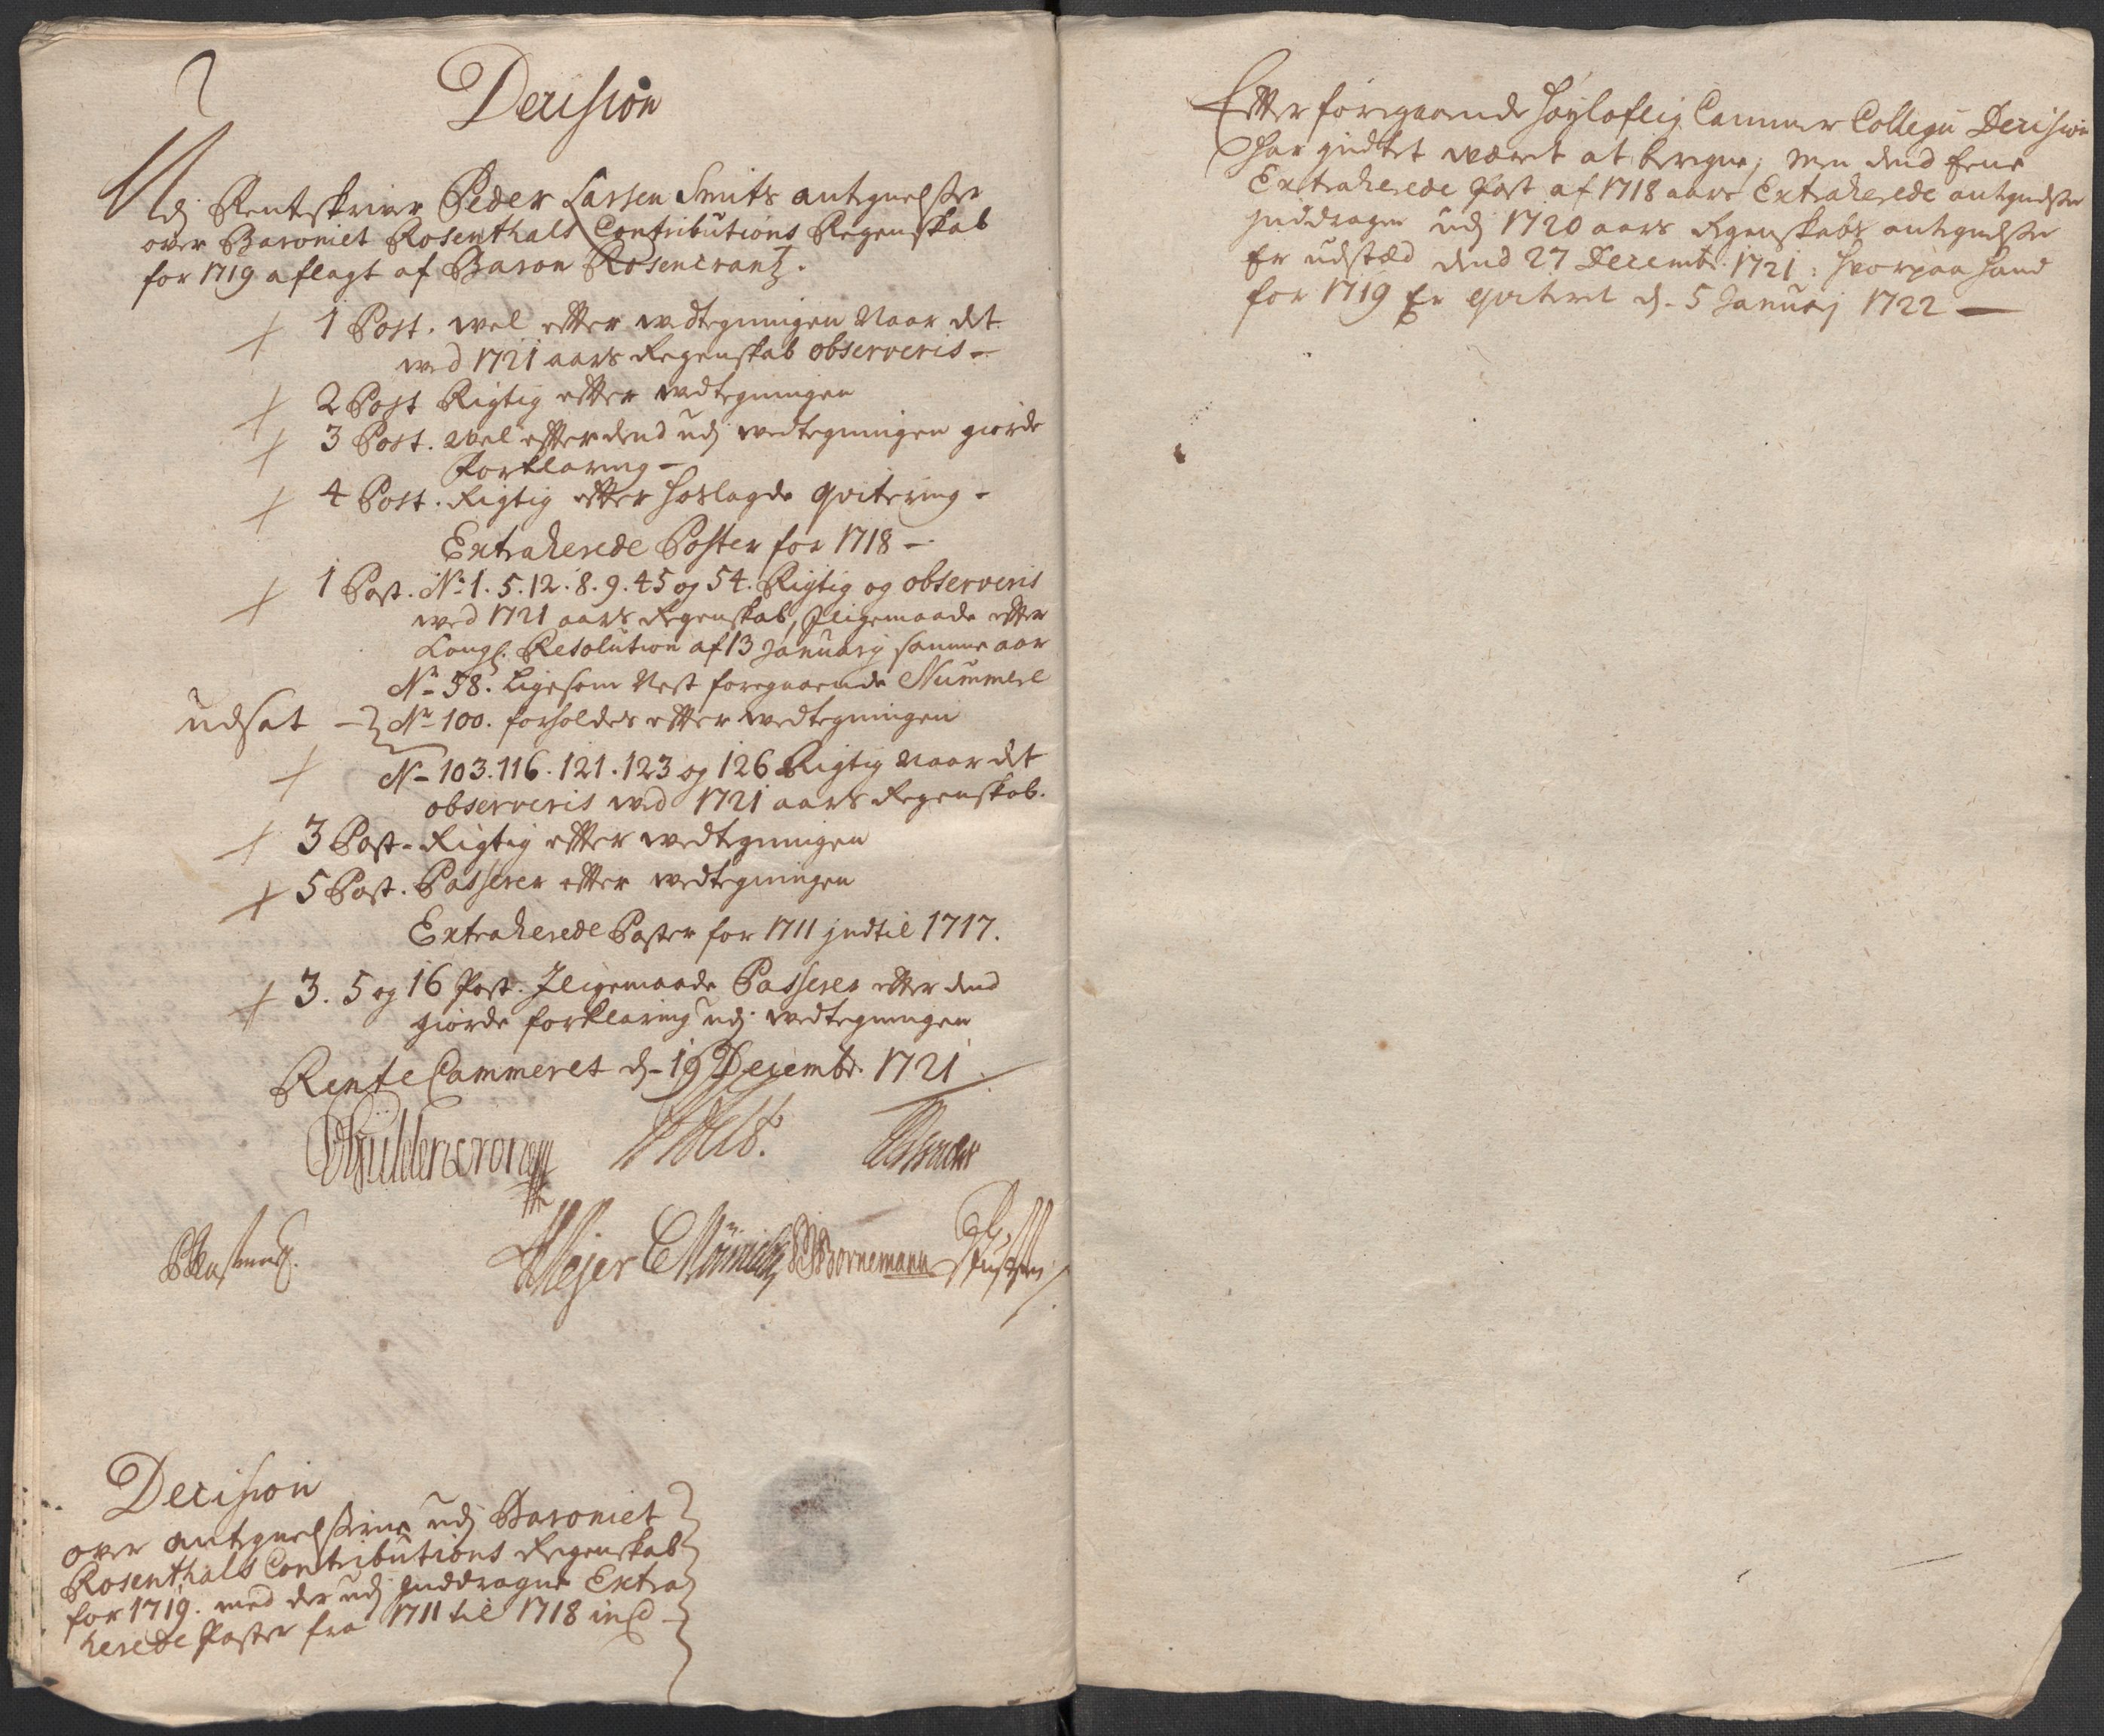 Decision
Udj Rentskriver Peder Lassen Smits Antegnelser
over Baroniet Rosenthals Contributions Regenskab
for 1719 aflagt af Baron Rosencrantz.
1 Post. vel efter vedtegningen Naar det
ved 1721 aars Regenskab observeris –
2 Post Rigtig efter vedtegningen
3 Post. vel efter dend udj vedtegningen giorde
Forklaring –
4 Post. Rigtig efter hoslagde qvitering –
Extraherede Poster for 1718 –
1 Post. No 1. 5. 12. 8. 9. 45 og 54. Rigtig og observeris
ved 1721 aars Regenskab, Jligemaade efter
Kongl. Resolution af 13 January samme aar
No 58. Ligesom Nest foregaaende Nummere
udsat – No 100. forholdes efter vedtegningen
No 103. 116. 121. 123 og 126 Rigtig Naar det
observeris ved 1721 aars Regenskab.
3 Post – Rigtig efter vedtegningen
5 Post. Passerer efter vedtegningen
Extraherede Poster for 1711 indtil 1717.
3. 5 og 16 Post. Jligemaade Passerer efter dend
giorde forklaring udj vedtegningen
Rente Cammeret d. 19 Decembr. 1721
Güldencrone
Meyer Bornemann
Decision
over Antegnelserne udj Baroniet
Rosenthals Contributions Regenskab
for 1719. med der udj Jnddragne Extra
herede Poster fra 1711 til 1718 incl.
Efter foregaaende höyloflig Cammer Collegii Decision
har jndtet veret at beregne, men dend Eene
Extraherede Post af 1718 aars Extraherede antegnelser
Jnddragen udj 1720 aars Regenskabs antegnelser
Er udsted dend 27 Decembr. 1721: hvorpaa hand
for 1719 Er qviteret d. 5 Januarj 1722 –